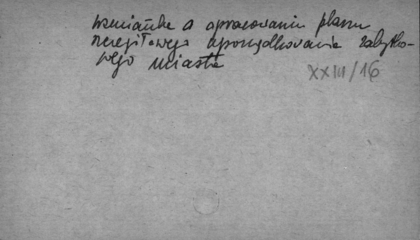 wzmianka o opracowaniu planu
szczegółowego uporządkowania zabytko-
wego miasta
XXIII/16